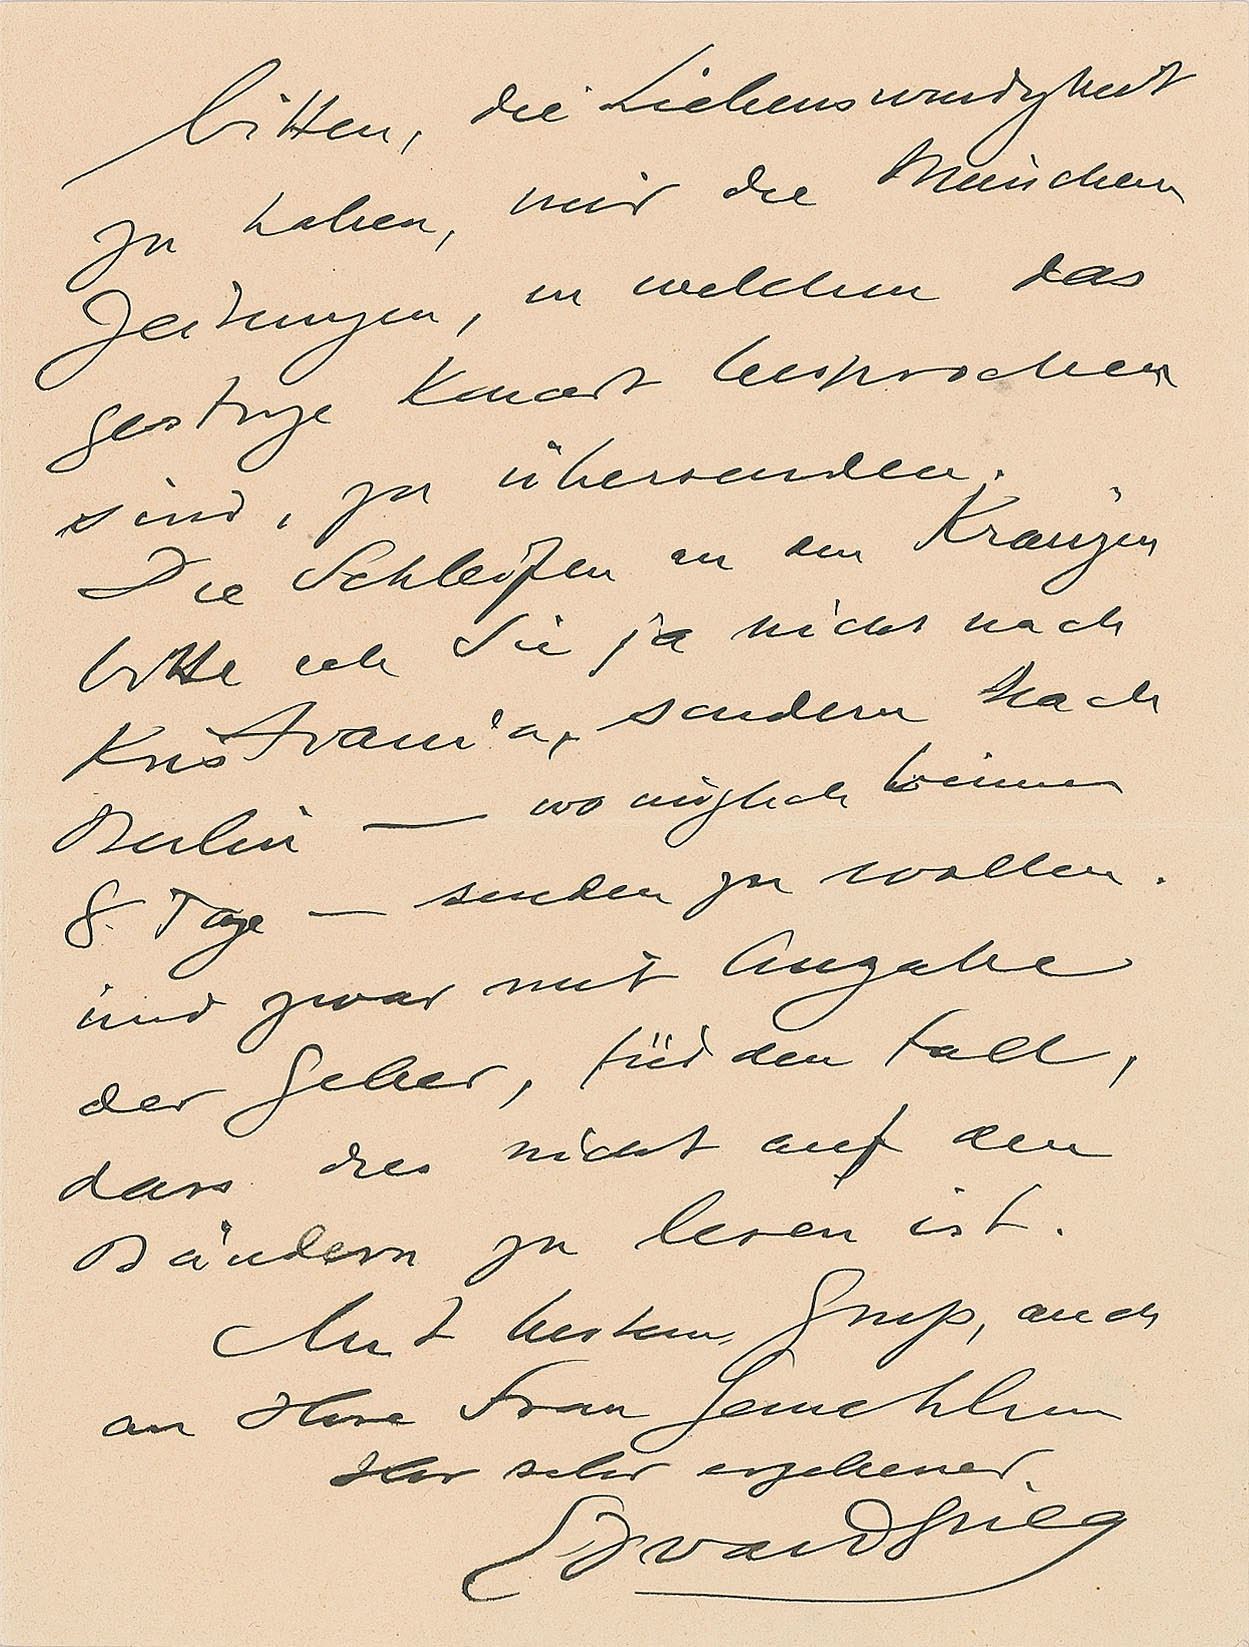 bitten, die Liebenswürdigkeit
zu haben, mir die Münchener
Zeitungen, in welchen das
gestrige Koncert besprochen
sind, zu übersenden.
Die Schleifen an den Kränzen
bitte ich Sie ja nicht nach
Kristiania, sondern nach
Berlin — wo möglich binnen
8 Tage — senden zu wollen.
und zwar mit Angabe
der Geber, für den Fall,
dass dies nicht auf den
Bändern zu lesen ist.
Mit bestem Gruß, auch
an Ihre Frau Gemahlin
Ihr sehr ergebener
Edvard Grieg